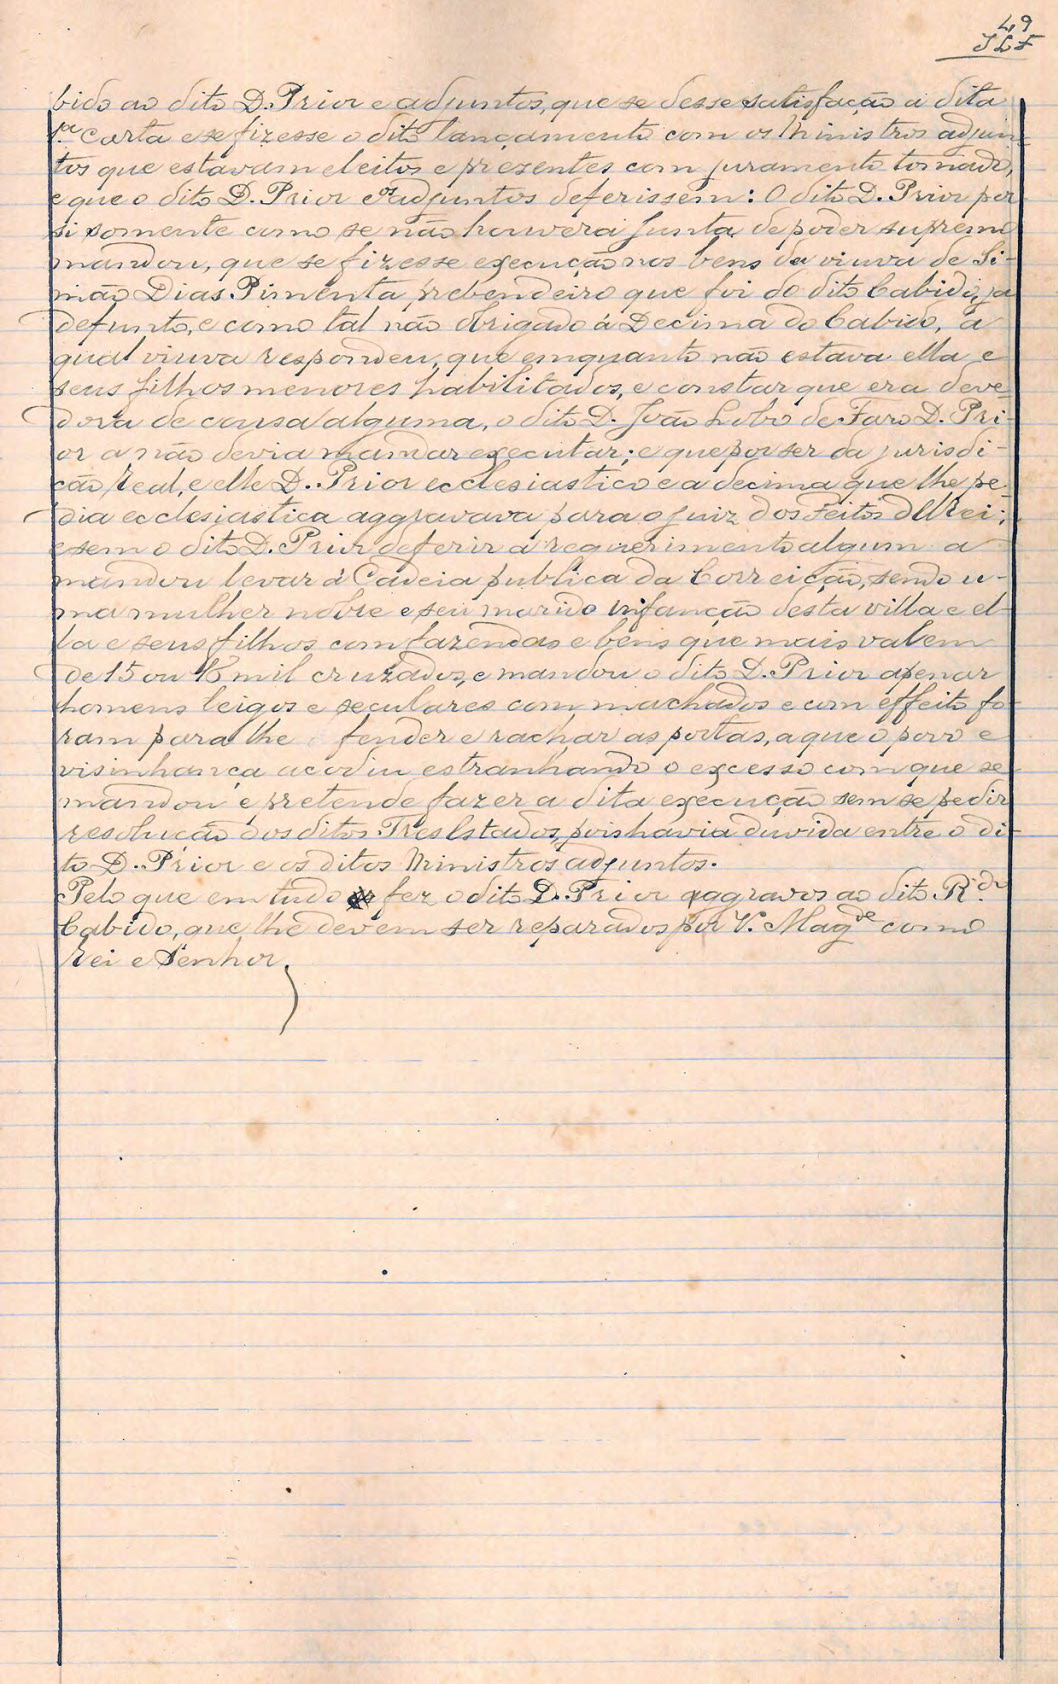 49
JLF
bido ao dito D. Prior e adjuntos, que se desse satisfação á dita
carta e se fizesse o dito lançamento com os Ministros adjun-
tos que estavam eleitos e prezentes com juramento tomado,
e que o dito D. Prior e os adjuntos deferissem: O dito D. Prior por
si somente como se não houvera Junta de poder supremo
mandou, que se fizesse execução nos bens da viuva de Si-
mão Dias Pimenta, prebendeiro que foi do dito Cabido, ja
defunto, e como tal não obrigado á Decima do Cabido, a
qual viuva respondeu, que emquanto não estava ella e
seus filhos menores habilitados, e constar que era deve-
dora de cousa alguma, o dito D. João Lobo de Faro D. Pri-
or a não devia mandar executar; e que por ser da jurisdi-
ção real, e elle D. Prior ecclesiastico e a decima que lhe pe-
dia ecclesiastica aggravava para o juiz dos Feitos d'El rei;
e sem o dito D. Prior deferir a requerimento algum a
mandou levar á Cadeia publica da Correição, sendo u-
ma mulher nobre e seu marido infanção desta villa e el-
la e seus filhos com fazendas e bens que mais valem
de 15 ou 16 mil cruzados, e mandou o dito D. Prior apenar
homens leigos e seculares com machados e com effeito fo-
ram para lhe fender e rachar as portas, a que o povo e
visinhança acodiu estranhando o excesso com que se
mandou e pretende fazer a dita execução sem se pedir
resolução dos ditos Tres Estados, pois havia duvida entre o di-
to D. Prior e os ditos Ministros adjuntos.
Pelo que em tudo fez o dito D. Prior aggravos ao dito R.do
Cabido, que lhe devem ser reparados por V. Mag.de como
rei e Senhor.